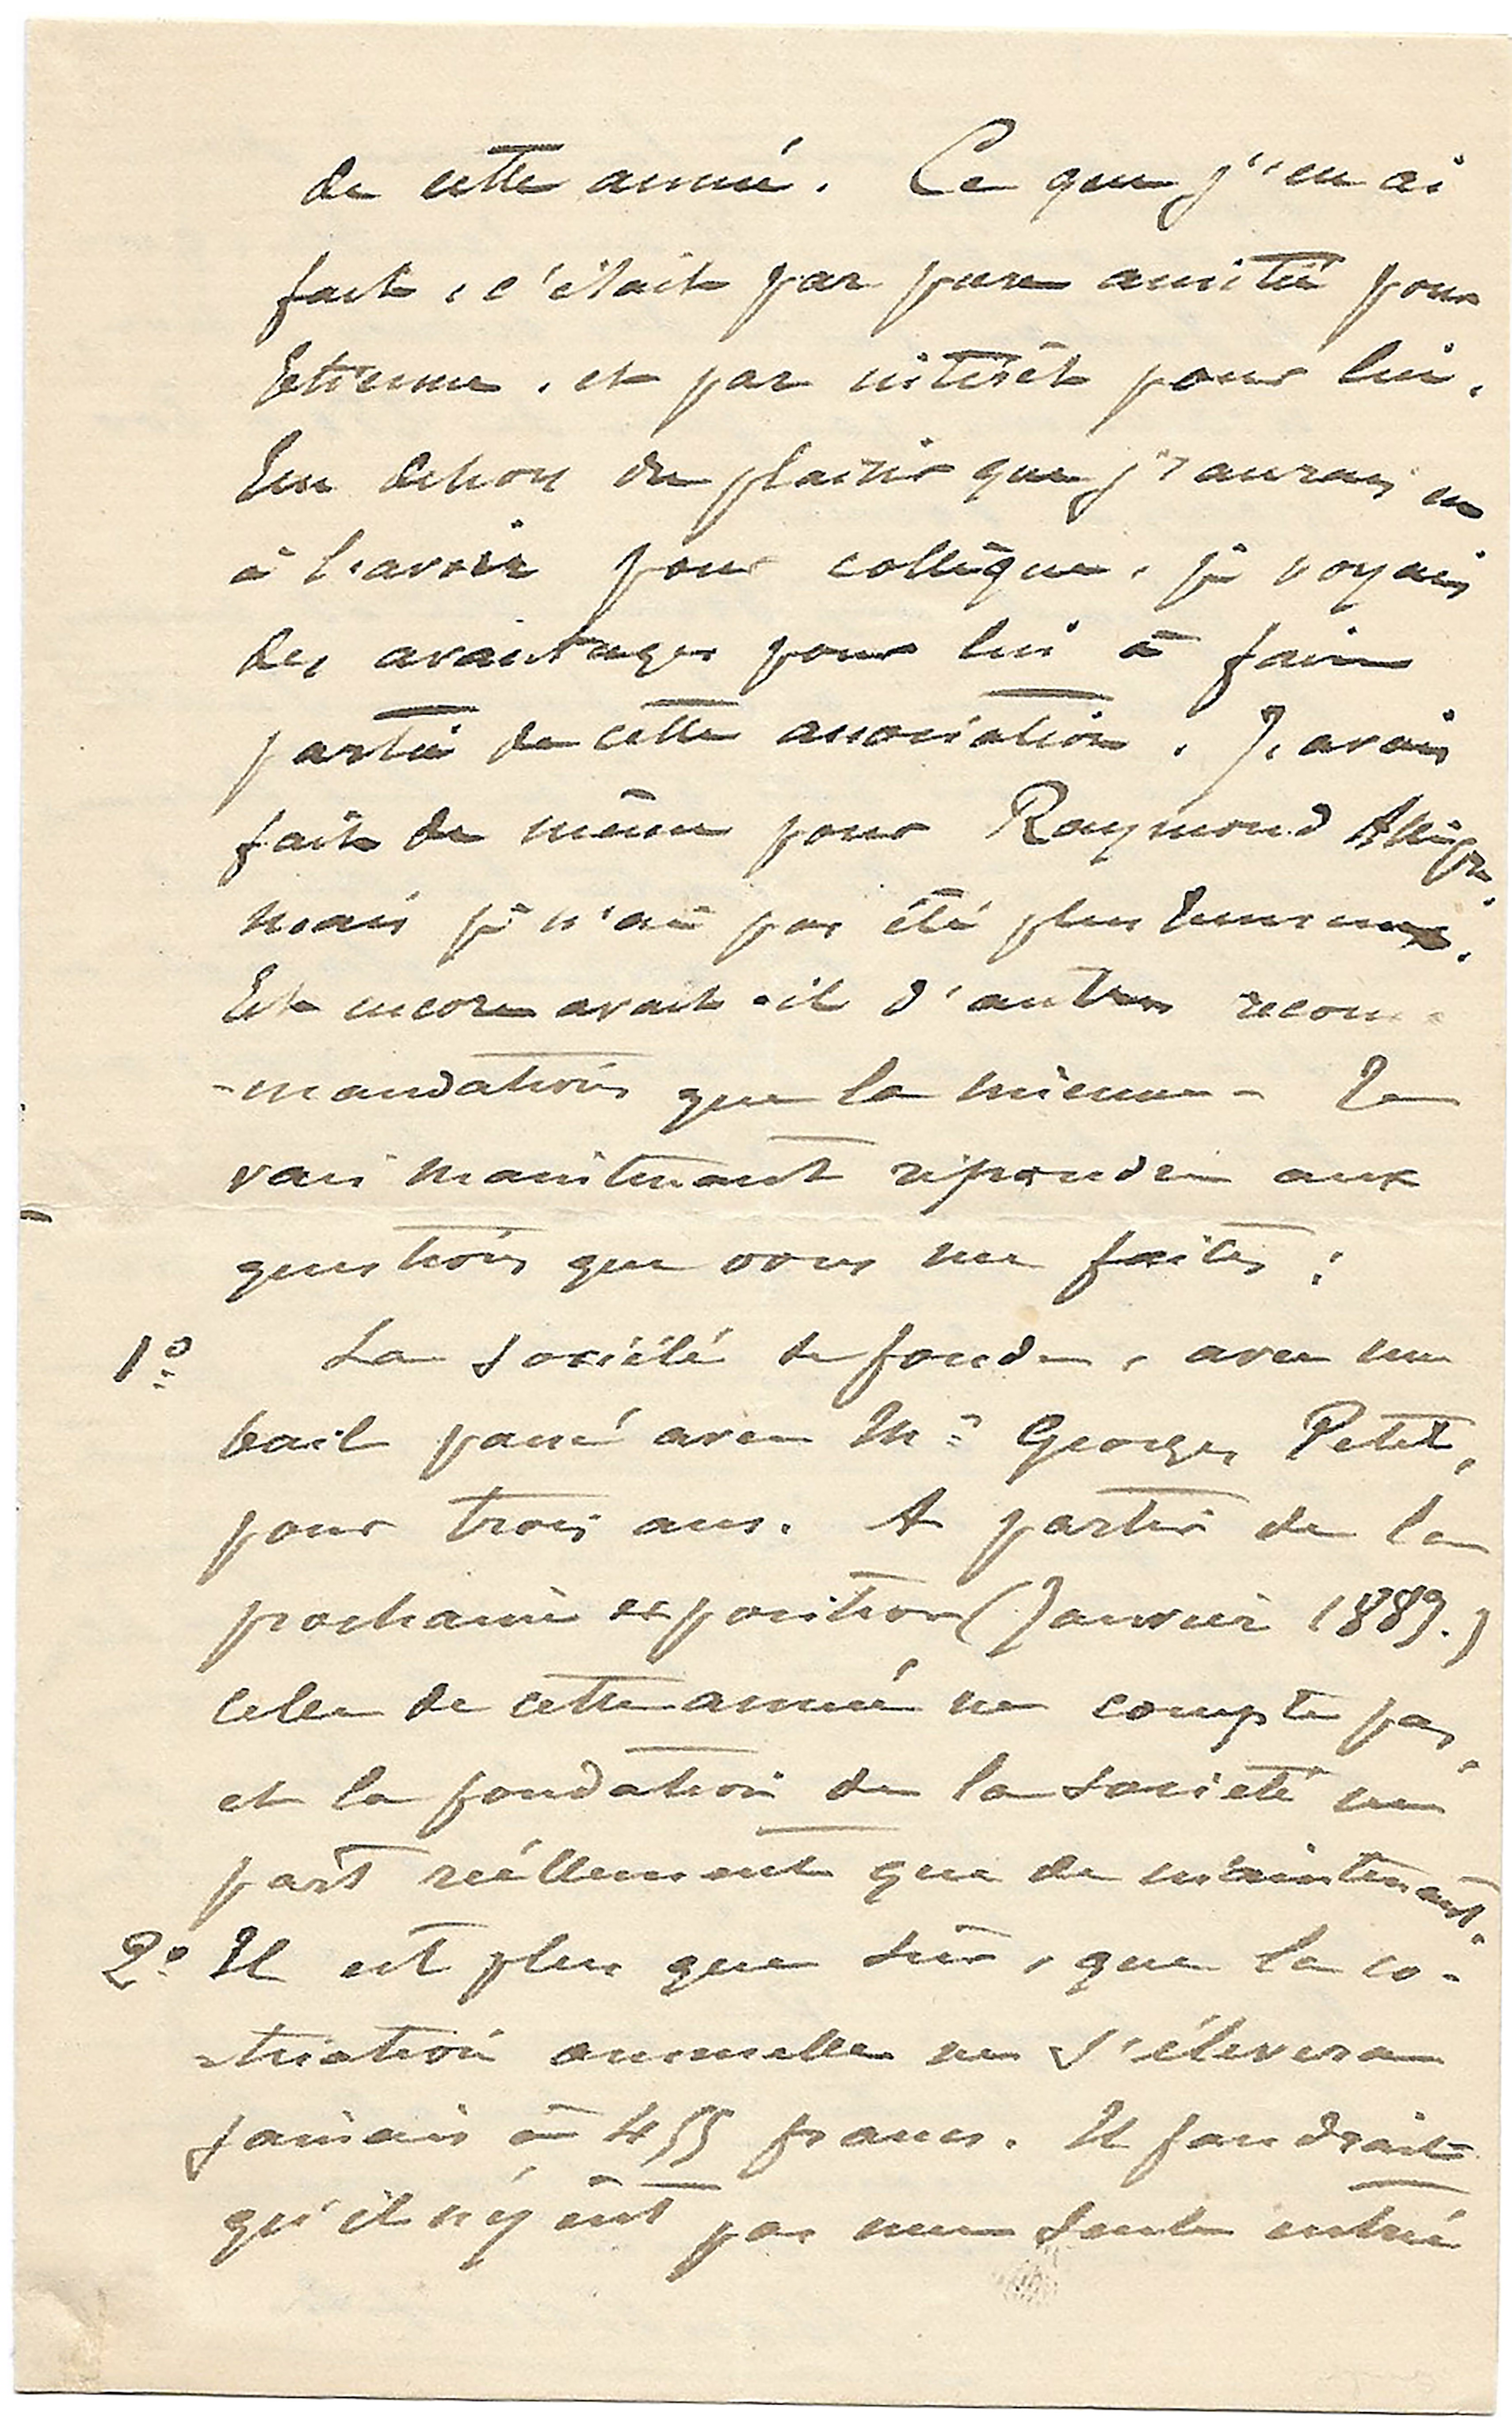 de cette année. Ce que j'en ai
fait, c'était par pure amitié pour
Etienne, et par intérêt pour lui.
En dehors du plaisir que j'aurais eu
à l'avoir pour collègue, je voyais
des avantages pour lui à faire
partie de cette association. J'avais
fait de même pour Raymond
mais je n'ai pas été plus heureux.
Et encore avait-il d'autres recom-
-mandations que la mienne - Je
vais maintenant répondre aux
questions que vous me faites :
1º La Société se fonde, avec un
bail passé avec Mr Georges Petit,
pour trois ans. A partir de la
prochaine exposition (Janvier 1889.)
celle de cette année ne compte pas,
et la fondation de la société ne
part réellement que de maintenant.
2º Il est plus que sûr, que la co-
-tisation annuelle ne s'élevera
jamais à 455 francs. Il faudrait
qu'il n'y eût pas une seule entrée